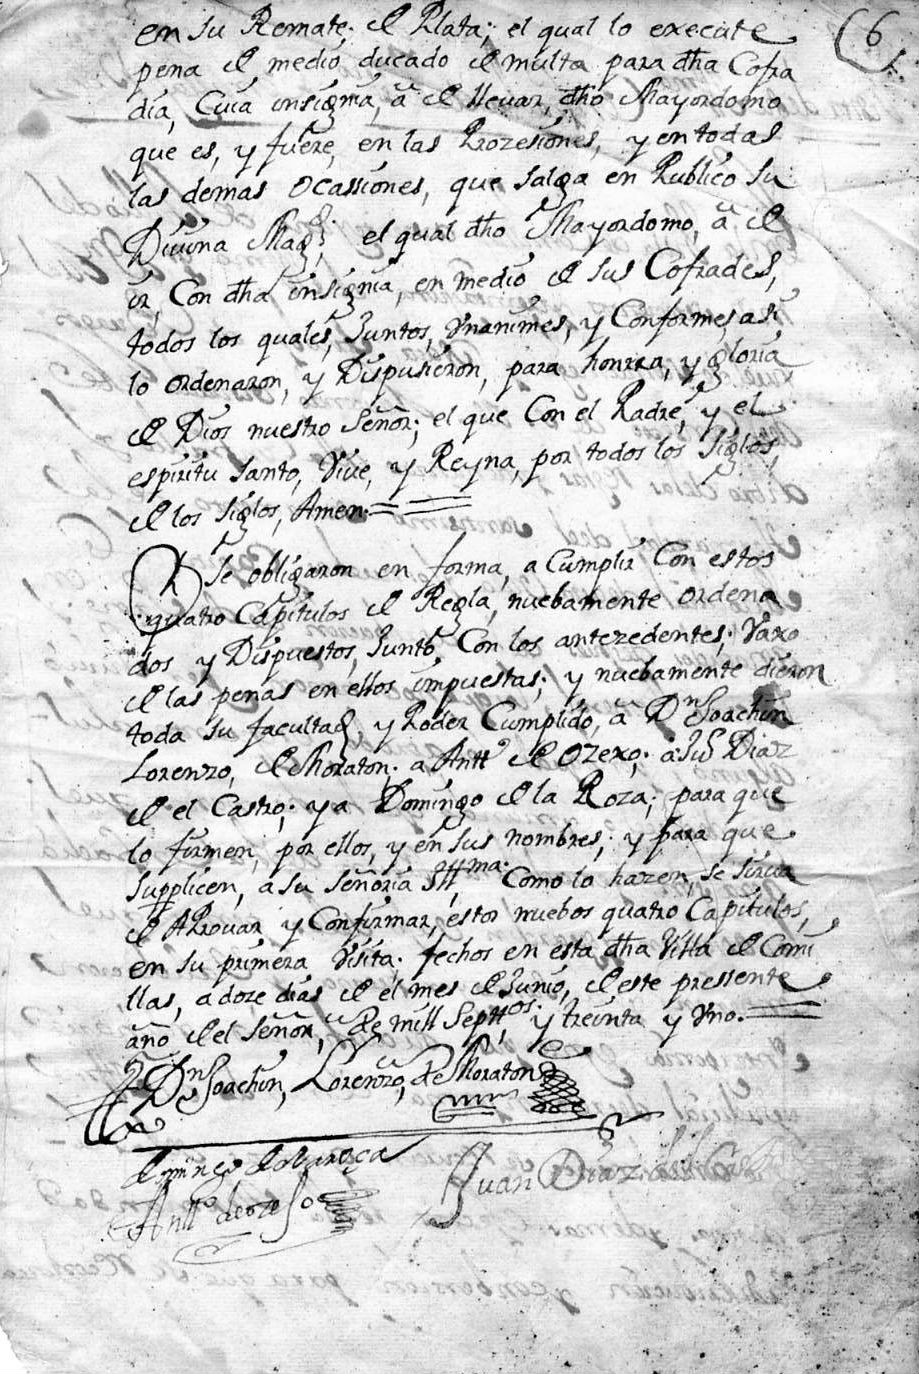 6
en su Remate; de Plata; el qual lo execute
pena de medio ducado de multa para dha Cofra
dia, Cuia insignia, a de llevar, dho Mayordomo
que es, y fuere, en las Prozesiones, y en todas
las demas ocassiones, que salga en Publico su
Divina Magd; el qual dho Mayordomo, a de
ir, Con dha insignia, en medio de sus Cofrades,
todos los quales, Juntos, Vnanimes, y Conformes, asi
lo ordenaron, y Dispusieron, para honrra, y gloria
de Dios nuestro Señor; el que Con el Padre, y el
espiritu santo, Vive, y Reyna, por todos los siglos,
de los siglos, Amen.
Y se obligaron en forma, a Cumplir Con estos
quatro Capitulos de Regla, nuebamente ordena
dos y Dispuestos, Junto Con los antezedentes; Vaxo
de las penas en ellos impuestas; y nuebamente dieron
toda su facultad, y Poder Cumplido, a Dn Joachin
Lorenzo, de Moraton; a Antto de Ozexo; a Ju Diaz
de el Castro; y a Domingo de la Roza; para que
lo firmen, por ellos, y en sus nombres; y para que
suppliCen, a su señoria Illma. Como lo hazen, se sirva
de APROvar y Confirmar, estos nuebos quatro Capitulos,
en su primera Visita; fechos en esta dha Villa de Comi
llas, a doze dias de el mes de Junio, de este pressente
año de el señor, de mill Septtos. y treinta y Vno.
Dn Joachin, Lorenzo, de Moraton
Juan Diaz
Antto de ozejo